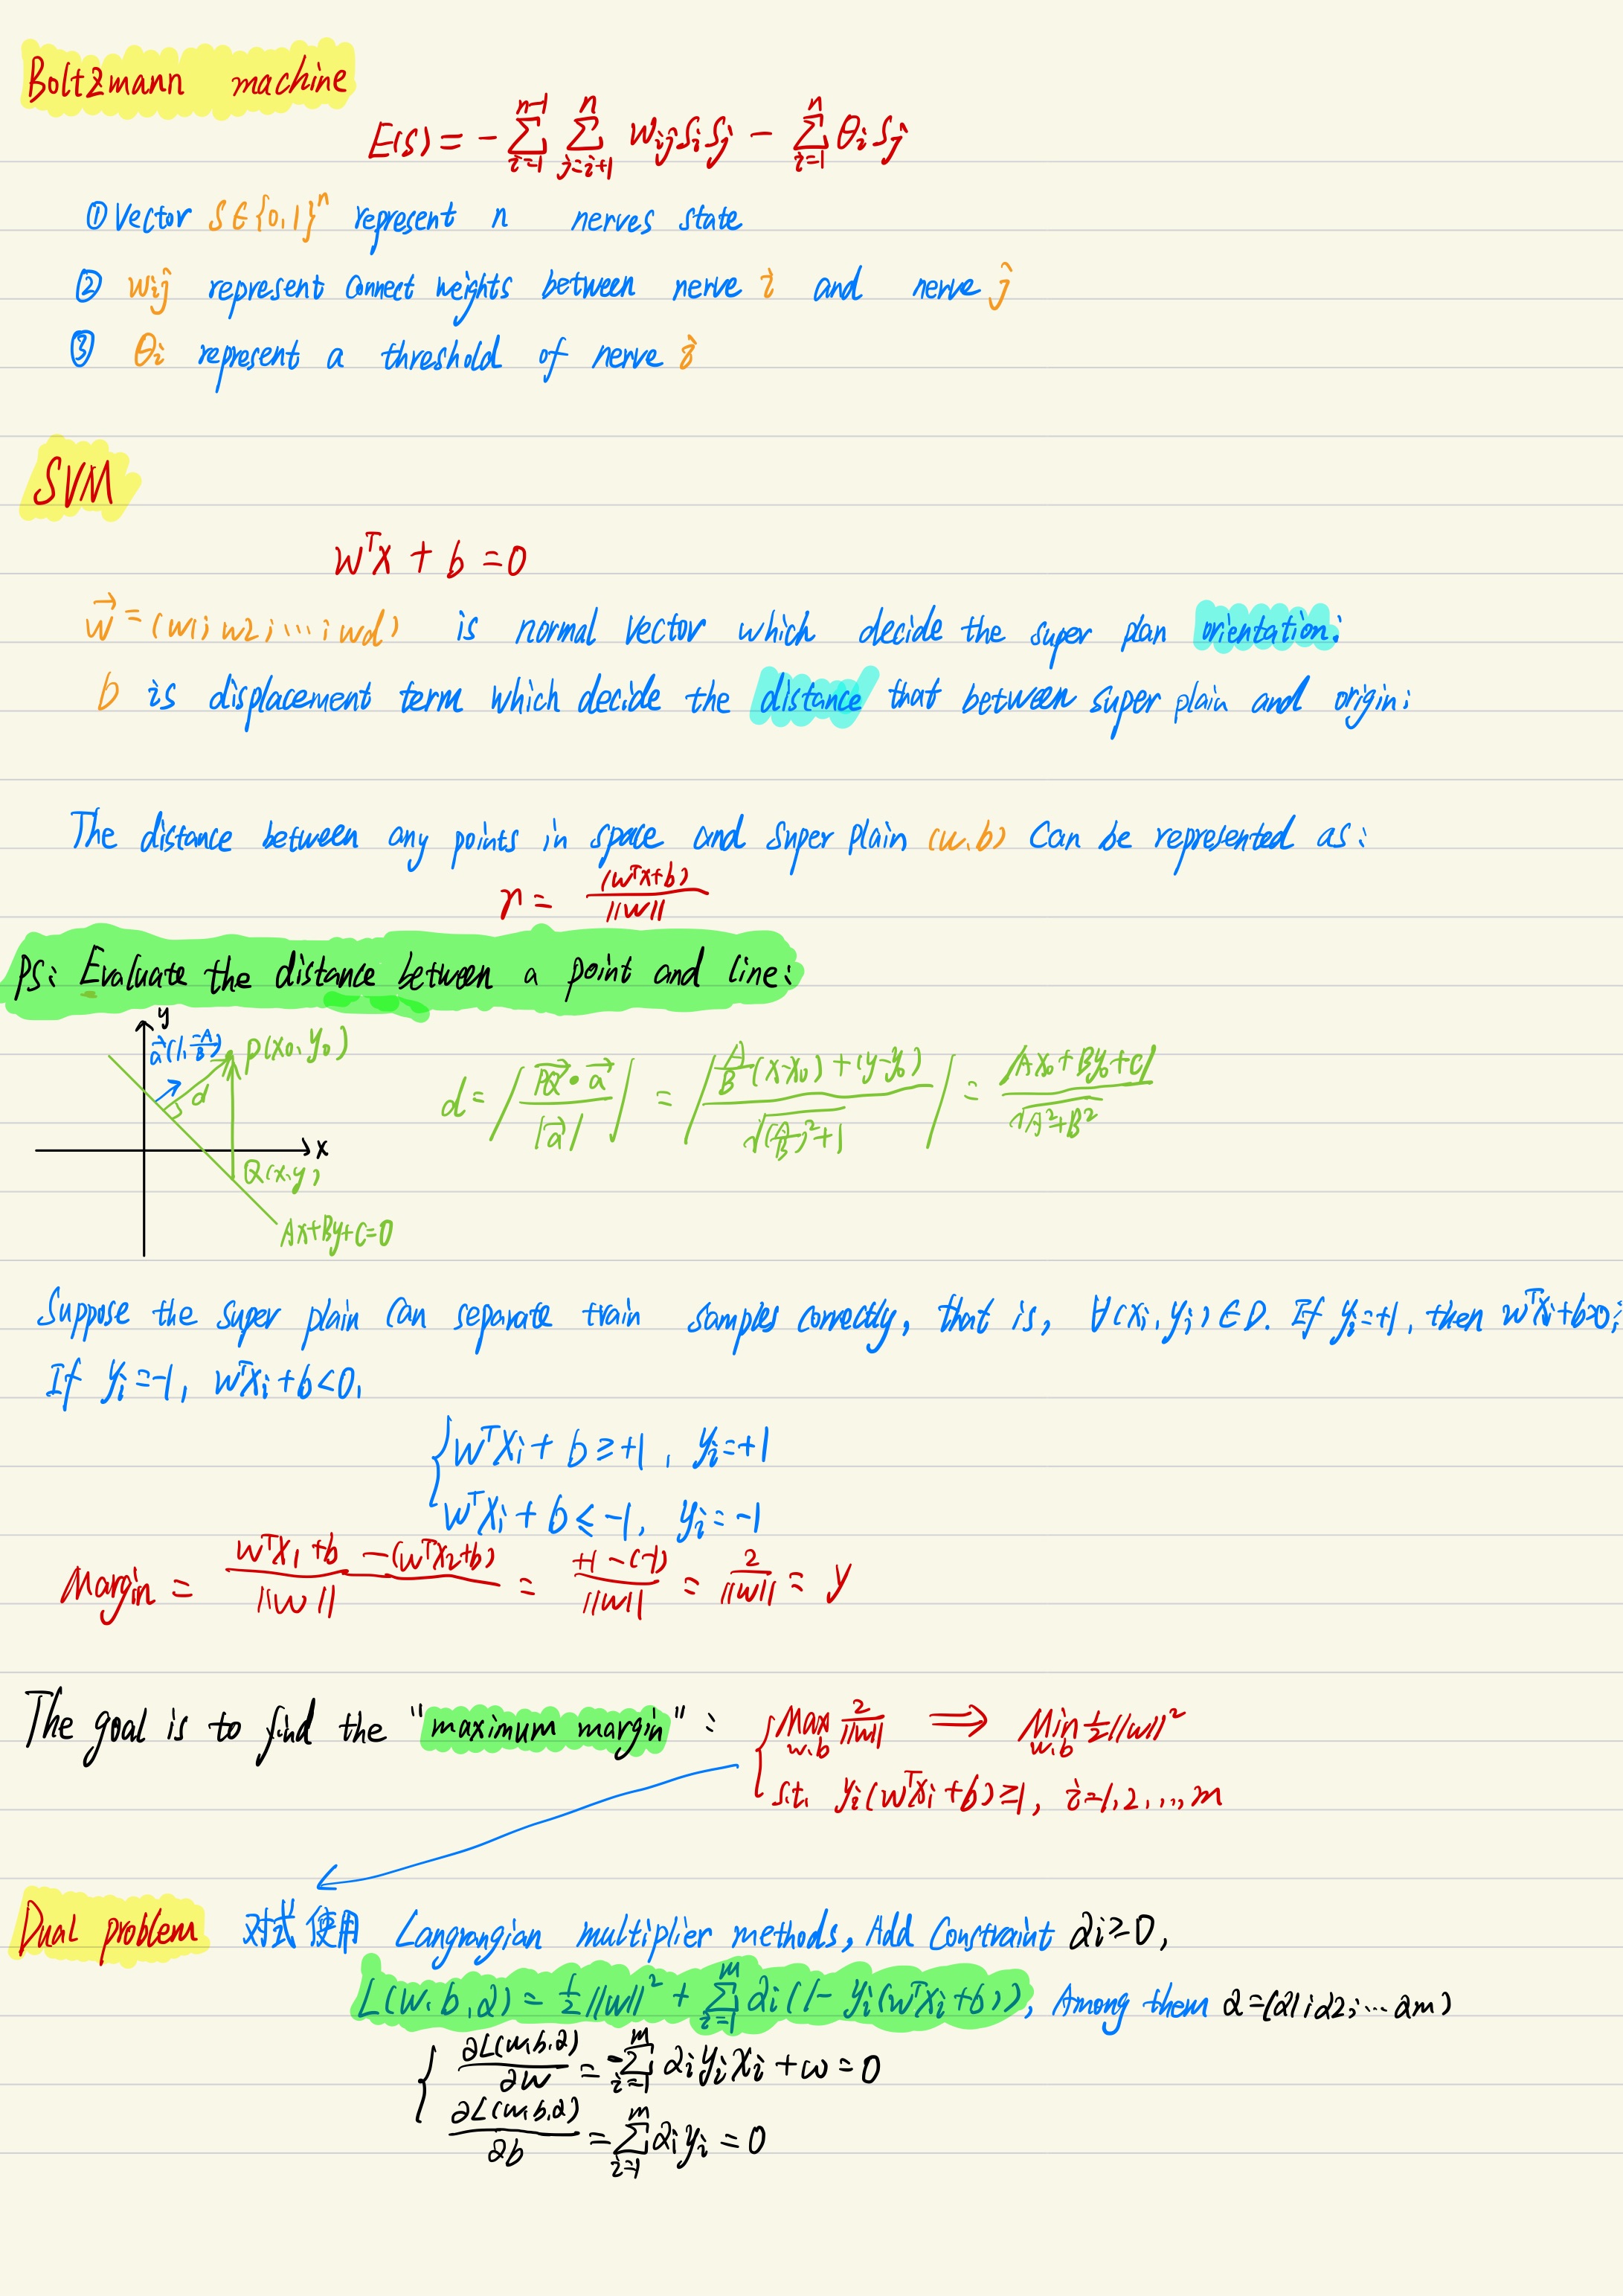 Boltzmann machine
E(s) = - \sum_{i=1}^{n-1} \sum_{j=i+1}^{n} w_{ij} s_i s_j - \sum_{i=1}^{n} θ_i s_j
① Vector S∈{0,1}^n represent n nerves state
② wij represent connect weights between nerve i and nerve j
③ θi represent a threshold of nerve i
SVM
w^T x + b = 0
\vec{w} = (w1; w2; ...; wd) is normal vector which decide the super plan orientation;
b is displacement term which decide the distance that between super plain and origin;
The distance between any points in space and super plain (w.b) can be represented as:
r = (w^T x + b) / ||w||
PS: Evaluate the distance between a point and line:
y
\vec{a}(1, -A/B) P(x0, y0)
d
d = |\vec{PQ} • \vec{a} / |\vec{a}|| = |(A/B (x-x0) + (y-y0)) / \sqrt{(A/B)^2+1}| = |Ax0+By0+C| / \sqrt{A^2+B^2}
x
Q(x.y)
Ax+By+C=0
Suppose the super plain can separate train samples correctly, that is, ∀(xi, yi)∈D. If yi=+1, then w^T xi+b>0;
If yi=-1, w^T xi+b<0.
{ w^T xi + b ≥ +1, yi=+1
w^T xi + b ≤ -1, yi=-1
Margin = (w^T x1 + b - (w^T x2+b)) / ||w|| = (+1-(-1)) / ||w|| = 2 / ||w|| = y
The goal is to find the "maximum margin": { Max_{w.b} 2/||w|| ⟹ Min_{w.b} 1/2||w||^2
s.t. yi(w^T xi+b)≥1, i=1,2,...,m
Dual problem 对式使用 Langrangian multiplier methods, Add Constraint αi≥0,
L(w.b.α) = 1/2||w||^2 + \sum_{i=1}^{m} αi(1-yi(w^T xi+b)), Among them α=(α1;α2;...αm)
{ ∂L(w.b.α)/∂w = -\sum_{i=1}^{m} αi yi xi + w = 0
∂L(w.b.α)/∂b = \sum_{i=1}^{m} αi yi = 0